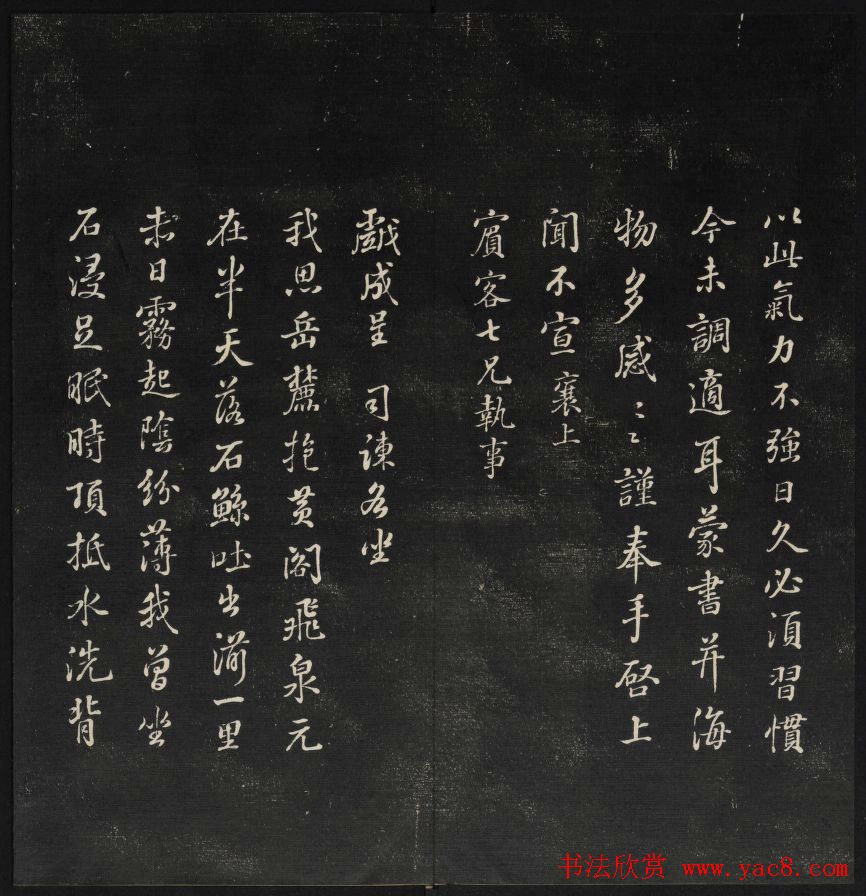 以此氣力不強日久必須習慣
今未調適耳蒙書并海
物多感〻謹奉手啓上
聞不宣襄上
賔客七兄執事
戯成呈 司諫各坐
我思岳麓抱黄閣飛泉元
在半天落石鯀吐出湔一里
赤日霧起陰紛薄我曾坐
石浸足眠時頂抵水洗背
书法欣赏 www.yac8.com